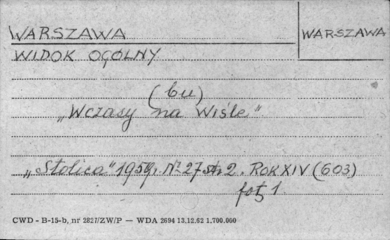 WARSZAWA
WARSZAWA
WIDOK OGÓLNY
(bu)
„Wczasy na Wiśle"
„Stolica" 1959. Nr 27 str. 2. ROK XIV (603)
fot. 1.
CWD - B-15-b, nr 2827/ZW/P — WDA 2694 13.12.62 1.700.000